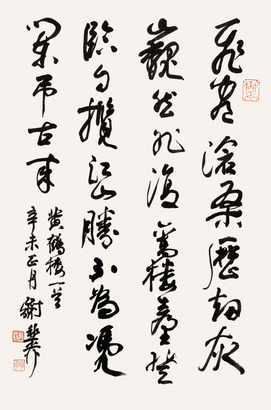 盡滄桑歷劫灰
巍然非復舊樓臺登
臨自攬江山勝不為憑
闌弔古來
黃鶴樓一首
辛未正月 謝稚柳